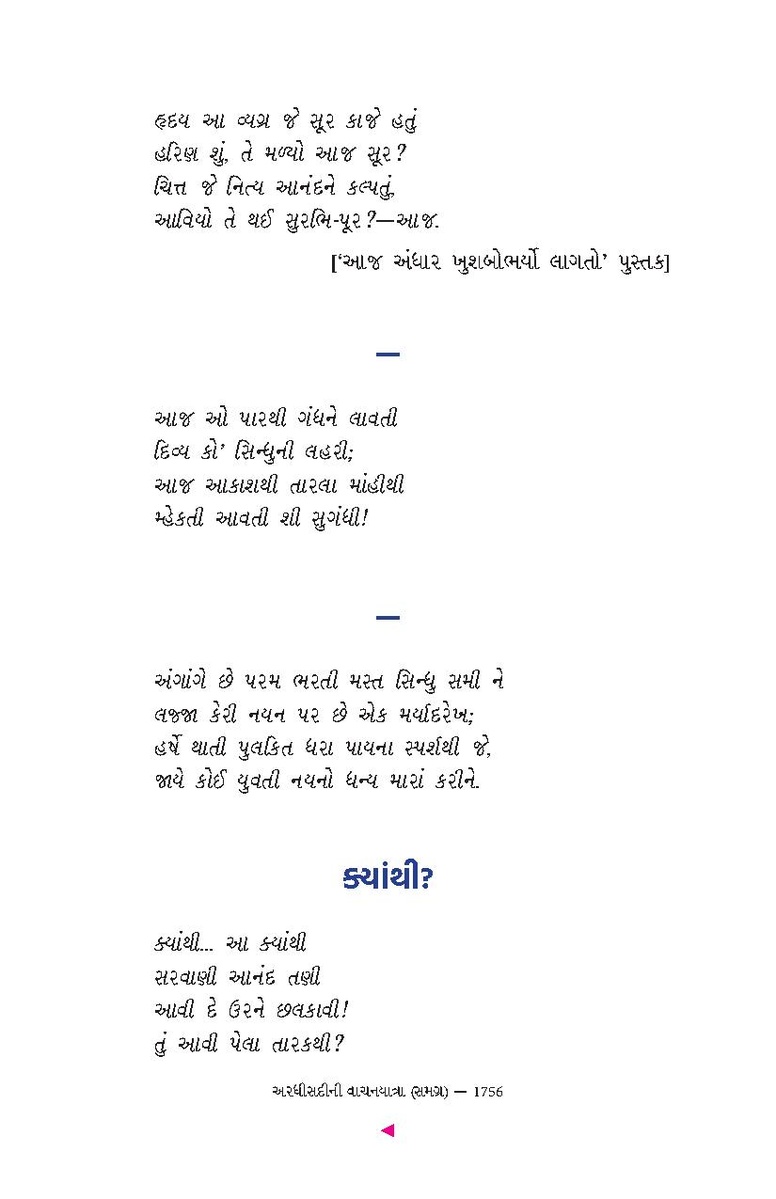 હૃદય આ વ્યગ્ર જે સૂર કાજે હતું
હરિણ શું, તે મળ્યો આજ સૂર?
ચિત્ત જે નિત્ય આનંદને કલ્પતું,
આવિયો તે થઈ સુરભિ-પૂર?—આજ.
[‘આજ અંધાર ખુશબોભર્યો લાગતો’ પુસ્તક]
—
આજ ઓ પારથી ગંધને લાવતી
દિવ્ય કો’ સિન્ધુની લહરી;
આજ આકાશથી તારલા માંહીથી
મ્હેકતી આવતી શી સુગંધી!
—
અંગાંગે છે પરમ ભરતી મસ્ત સિન્ધુ સમી ને
લજ્જા કેરી નયન પર છે એક મર્યાદરેખ;
હર્ષે થાતી પુલકિત ધરા પાયના સ્પર્શથી જે,
જાયે કોઈ યુવતી નયનો ધન્ય મારાં કરીને.
ક્યાંથી?
ક્યાંથી... આ ક્યાંથી
સરવાણી આનંદ તણી
આવી દે ઉરને છલકાવી!
તું આવી પેલા તારકથી?
અરધીસદીની વાચનયાત્રા (સમગ્ર) — 1756